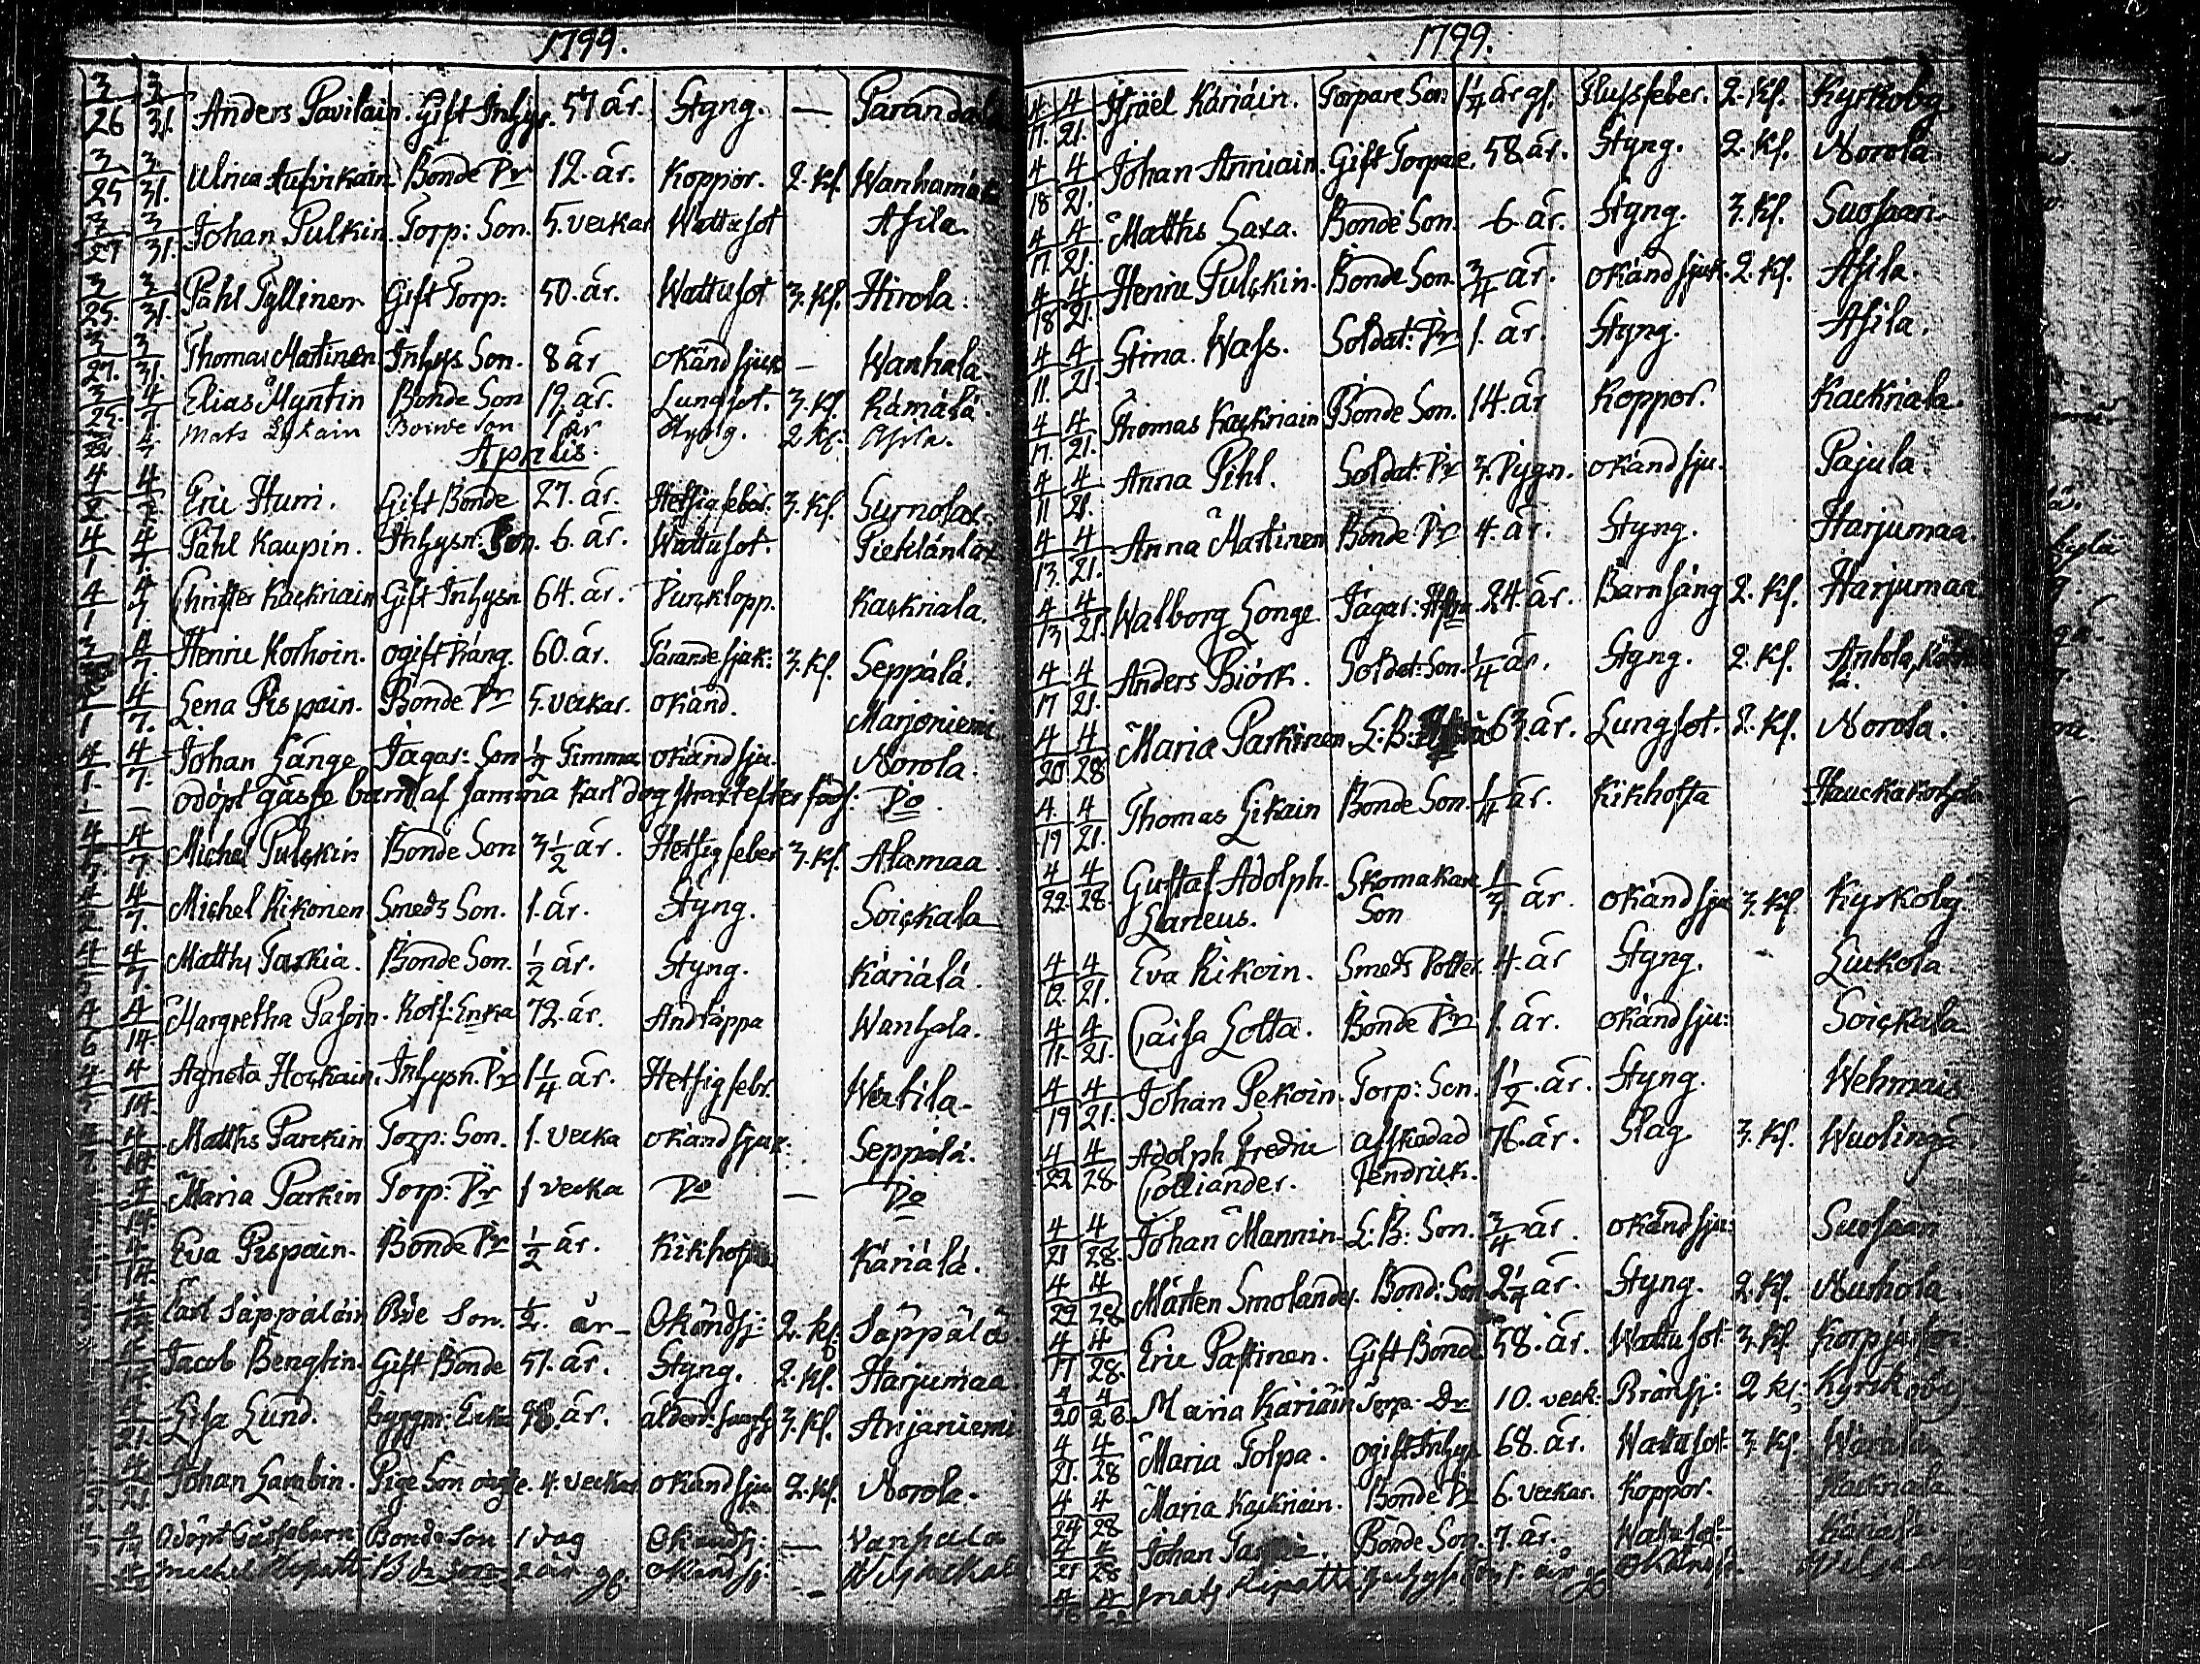 1799.
3/26 3/31. Anders Pavilain. Gift Inhys. 57 år. Styng. — Parandala
3/25 3/31. Ulrica Hufvikain Bonde Dr 12. år. Koppor. 2. Kl. Wanhamäk
3/27 3/31. Johan Pulkin. Torp: Son. 5. veckar Wattusot Asila.
3/25. 3/31. Påhl Tyllinen Gift Torp: 50. år. Wattusot 3. Kl. Hirola.
3/27. 3/31. Thomas Martinen Inhys Son. 8 år okänd sjuk — Wanhala.
3/25. 4/7. Elias Myntin Bonde Son 19. år. Lungsot. 3. Kl. Rämälä.
Mats Lykain Bonde Son 1 år Styng. 2 Kl: Asila.
Aprilis.
4/2 4/7. Eric Hurri. Gift Bonde 27. år. Hetsig feber. 3. Kl. Surnolax.
4/1. 4/7. Påhl Kaupin. Inhysn: Son. 6. år. Wattusot. Pieklänlax
4/1 4/7. Christer Kackriain Gift Inhysn 64. år. Durcklopp. Kackriala.
4/7. Henric Korhoin. ogift Dräng. 60. år. Tärande sjuk: 3. Kl. Seppälä.
4/1 4/7. Lena Pispain. Bonde Dr 5. veckar. okänd. Marjoniemi
4/1. 4/7. Johan Länge Jägar: Son ½ Timma okänd sju. Norola.
odöpt gåsse barn af samma Karl dog strax efter föds. Do.
4/7. Michel Pulckin Bonde Son 3½ år. Hetsig feber 3. Kl. Alamaa
4/2 4/7. Michel Rikonen Smeds Son. 1. år. Styng. Soickala
4/5 4/7. Matths Taskia. Bonde Son. ½ år. Styng. Käriälä.
4/6 4/14. Margretha Pasoin. Rotf: Enka 72. år. Andtäppa Wanhala.
4/14. Agneta Hockain. Inhysn. Dr 1¼ år. Hetsig febr. Wertila.
Matths Parckin Torp: Son. 1. vecka okänd sjuk: Seppälä.
4/14. Maria Parkin Torp: Dr 1 vecka Do — Do
4/14. Eva Pispain. Bonde Dr ½ år. Kikhosta Käriälä.
Carl Säppäläin Bde Son. ½. år — Okändsj: 2. Kl. Säppälä
Jacob Bengtin. Gift Bonde 51. år. Styng. 2. Kl. Harjumaa
4/21. Lisa Lund. Byggm: Enka 96. år. 3. Kl. Anjaniemi
4/21. Johan Lambin. Pige Son oägte. 4. veckar okänd sju 2. Kl. Norola.
Odöpt Gåssebarn Bonde Son 1 dag Okändsj: — Vanhala
Michel Bde Son 2 år gl. okändsj: —
1799.
4/17. 4/21. Israël Käriäin. Torpare Son 1¼ år gl. Flussfeber. 2. Kl. Kyrkoby.
4/18 4/21. Johan Anniain. Gift Torpare. 58. år. Styng. 2. Kl. Norola.
4/17. 4/21. Matths Saxa. Bonde Son. 6. år. Styng. 3. Kl. Suosaari.
4/18 4/21. Henric Pulckin. Bonde Son. ¾ år. okänd sjuk. 2. Kl. Asila.
4/11. 4/21. Stina. Wass. Soldat: Dr 1. år. Styng. Asila.
4/17. 4/21. Thomas Kackriain Bonde Son. 14. år Koppor. Kackriala
4/11 4/21. Anna Pihl. Soldat: Dr 3. Dygn. okänd sju. Pajula.
4/13. 4/21. Anna Martinen Bonde Dr 4. år. Styng. Harjumaa.
4/13 4/21. Walborg Longe Jägar: 24. år. Barnsäng 2. Kl. Harjumaa
4/17 4/21. Anders Biörk. Soldat: Son. ¼ år. Styng. 2. Kl. Anhola,
4/20 4/28. Maria Parkinen L: B: 63. år. Lungsot. 2. Kl. Norola.
4/19 4/21. Thomas Likain Bonde Son. ¼ år. Kikhosta Hauckakorhola
4/22. 4/28. Gustaf Adolph. Skomakare ⅓ år. okänd sju 3. Kl. Kyrkoby.
Laneus. Son
4/12. 4/21. Eva Rikoin. Smeds Dotter. 4. år Styng. Luckola.
4/11. 4/21. Caisa Lotta. Bonde Dr 1. år. okänd sju: Soickala
4/19 4/21. Johan Pekoin. Torp: Son. 1½. år. Styng. Wehmais
4/22 4/28. Adolph Fredric afskedad 76. år. Slag 3. Kl. Wuolingå
Colliander. Hendrick.
4/21 4/28. Johan Mannin. L: B: Son. ¾ år. okänd sju: Suosaari
4/29 4/28. Mårten Smolander. Bond: Son. 2¼ år. Styng. 2. Kl. Nurhola
4/17 4/28. Eric Pastinen. Gift Bond. 58. år. Wattusot 3. Kl. Korpjärfon
4/20 4/28. Maria Käriäin Torp. Dr 10. veck: Brånsj: 2 Kl: Kyrckoby
4/21. 4/28 Maria Tolpa. ogift Inhys. 68. år. Wattusot 3. Kl.
4/24 4/28 Maria Kackriain. Bonde Dr 6. veckar. Koppor. Kackriala
4/21 4/28 Johan Bonde Son. 7. år. Wattusot
Mats Ripatti